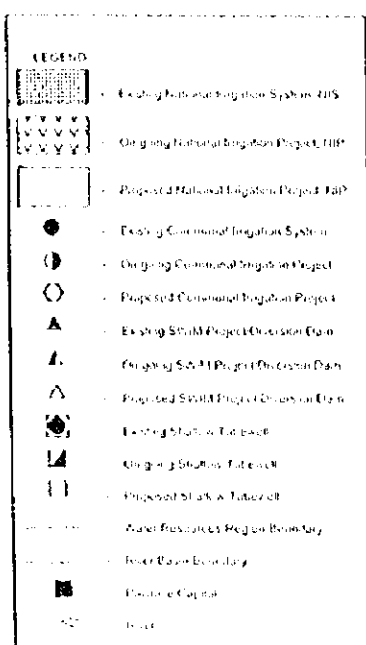 LEGEND
- Existing National Irrigation System, NIS
- Ongoing National Irrigation Project, NIP
- Proposed National Irrigation Project, NIP
- Existing Communal Irrigation System
- Ongoing Communal Irrigation Project
- Proposed Communal Irrigation Project
- Existing SWIM Project Diversion Dam
- Ongoing SWIM Project Diversion Dam
- Proposed SWIM Project Diversion Dam
- Existing Shallow Tubewell
- Ongoing Shallow Tubewell
- Proposed Shallow Tubewell
- Water Resources Region Boundary
- River Basin Boundary
- Province Capital